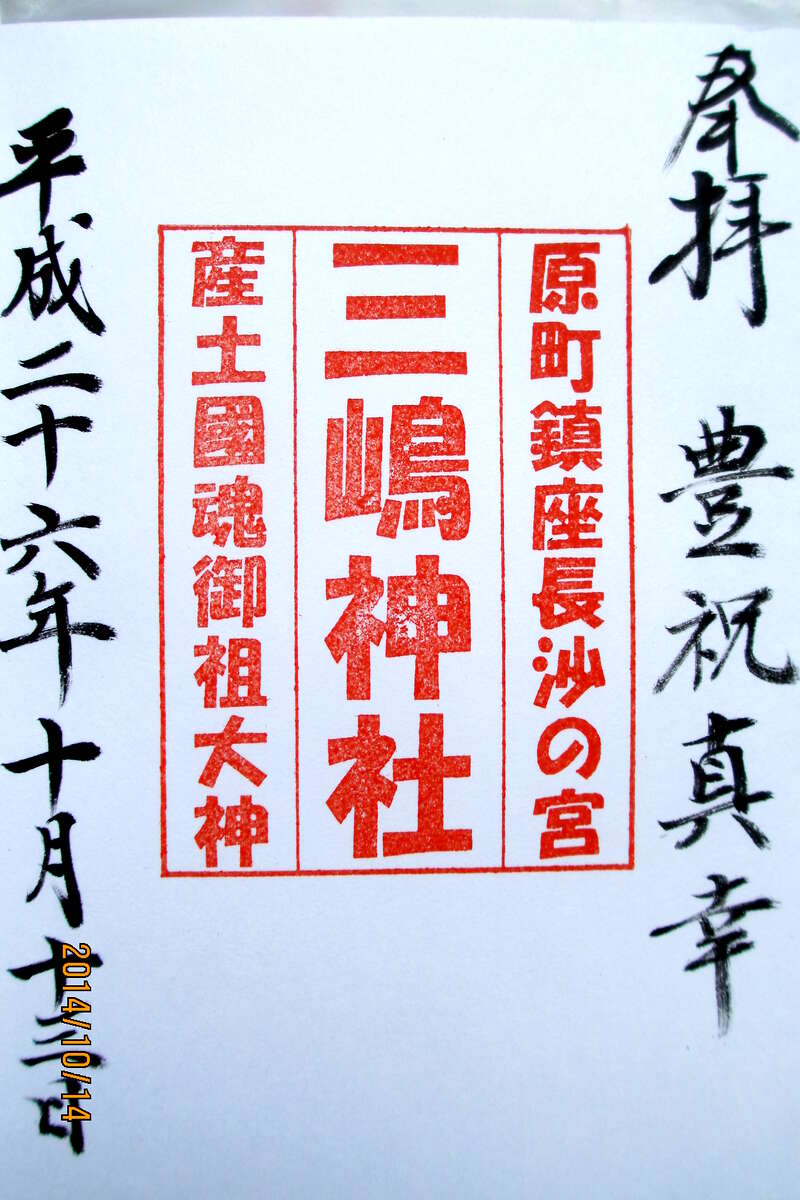 奉拝 豊祝真幸
原町鎮座長沙の宮
三嶋神社
産土國魂御祖大神
平成二十六年十月十三日
2014/10/14